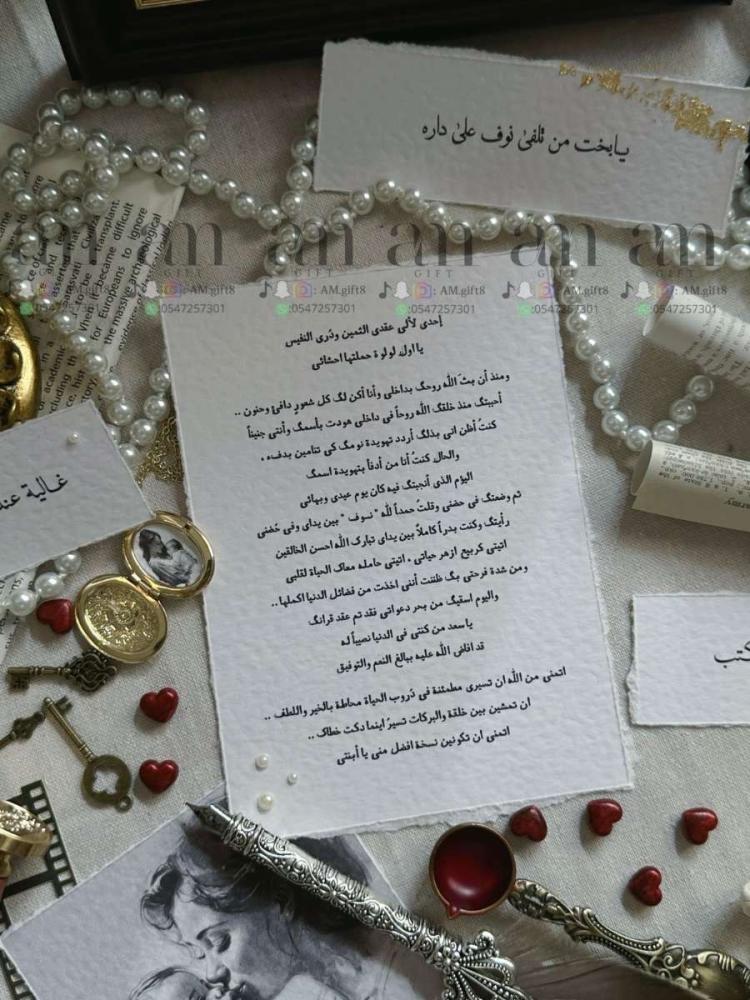 يابخت من تلفىٰ نوف علىٰ داره
am am am am am am
GIFT GIFT GIFT GIFT GIFT GIFT
: AM.gift8 : AM.gift8 : AM.gift8 : AM.gift8 : AM.gift8 : AM.gift8
:0547257301 :0547257301 :0547257301 :0547257301 :0547257301 :0547257301
إحدى لآلئ عقدي الثمين ودُري النفيس
يا اول لولوة حملتها احشائي
ومنذ أن بثّ الله روحگ بداخلي وأنا أكن لگ كل شعورٍ دافئ وحنون ..
أحببتگ منذ خلقگ الله روحاً في داخلي هودت بأسمگ وأنتي جنيناً
كنتُ أظن اني بذلگ أردد تهويدة نومگ كي تنامين بدفء .
والحال كنتُ أنا من أدفأ بتهويدة اسمگ
اليوم الذي أنجبتگ فيه كان يوم عيدي وبهائي
ثم وضعتگ في حضني وقلتُ حمداً لله " نوف " بين يداي وفي حُضني
رأيتگ وكنت بدراً كاملاً بين يداي تبارك الله احسن الخالقين
اتيتي كربيع ازهر حياتي . اتيتي حامله معاك الحياة لقلبي
ومن شدة فرحتي بگ ظننت أنني اخذت من فضائل الدنيا اكملها ..
واليوم اسقيگ من بحر دعواتي فقد تم عقد قرانگ
ياسعد من كنتي في الدنيا نصيباً له
قد افاض الله عليه ببالغ النعم والتوفيق
اتمنى من الله ان تسيري مطمئنة في دُروب الحياة محاطة بالخير واللطف ..
ان تمشين بين خلقة والبركات تسيرُ اينما دكت خطاك ..
اتمنى ان تكونين نسخة افضل مني يا أبنتي
غالية عند
كتب
transplant.
became difficult
for Europeans to ignore
the massive archaeological